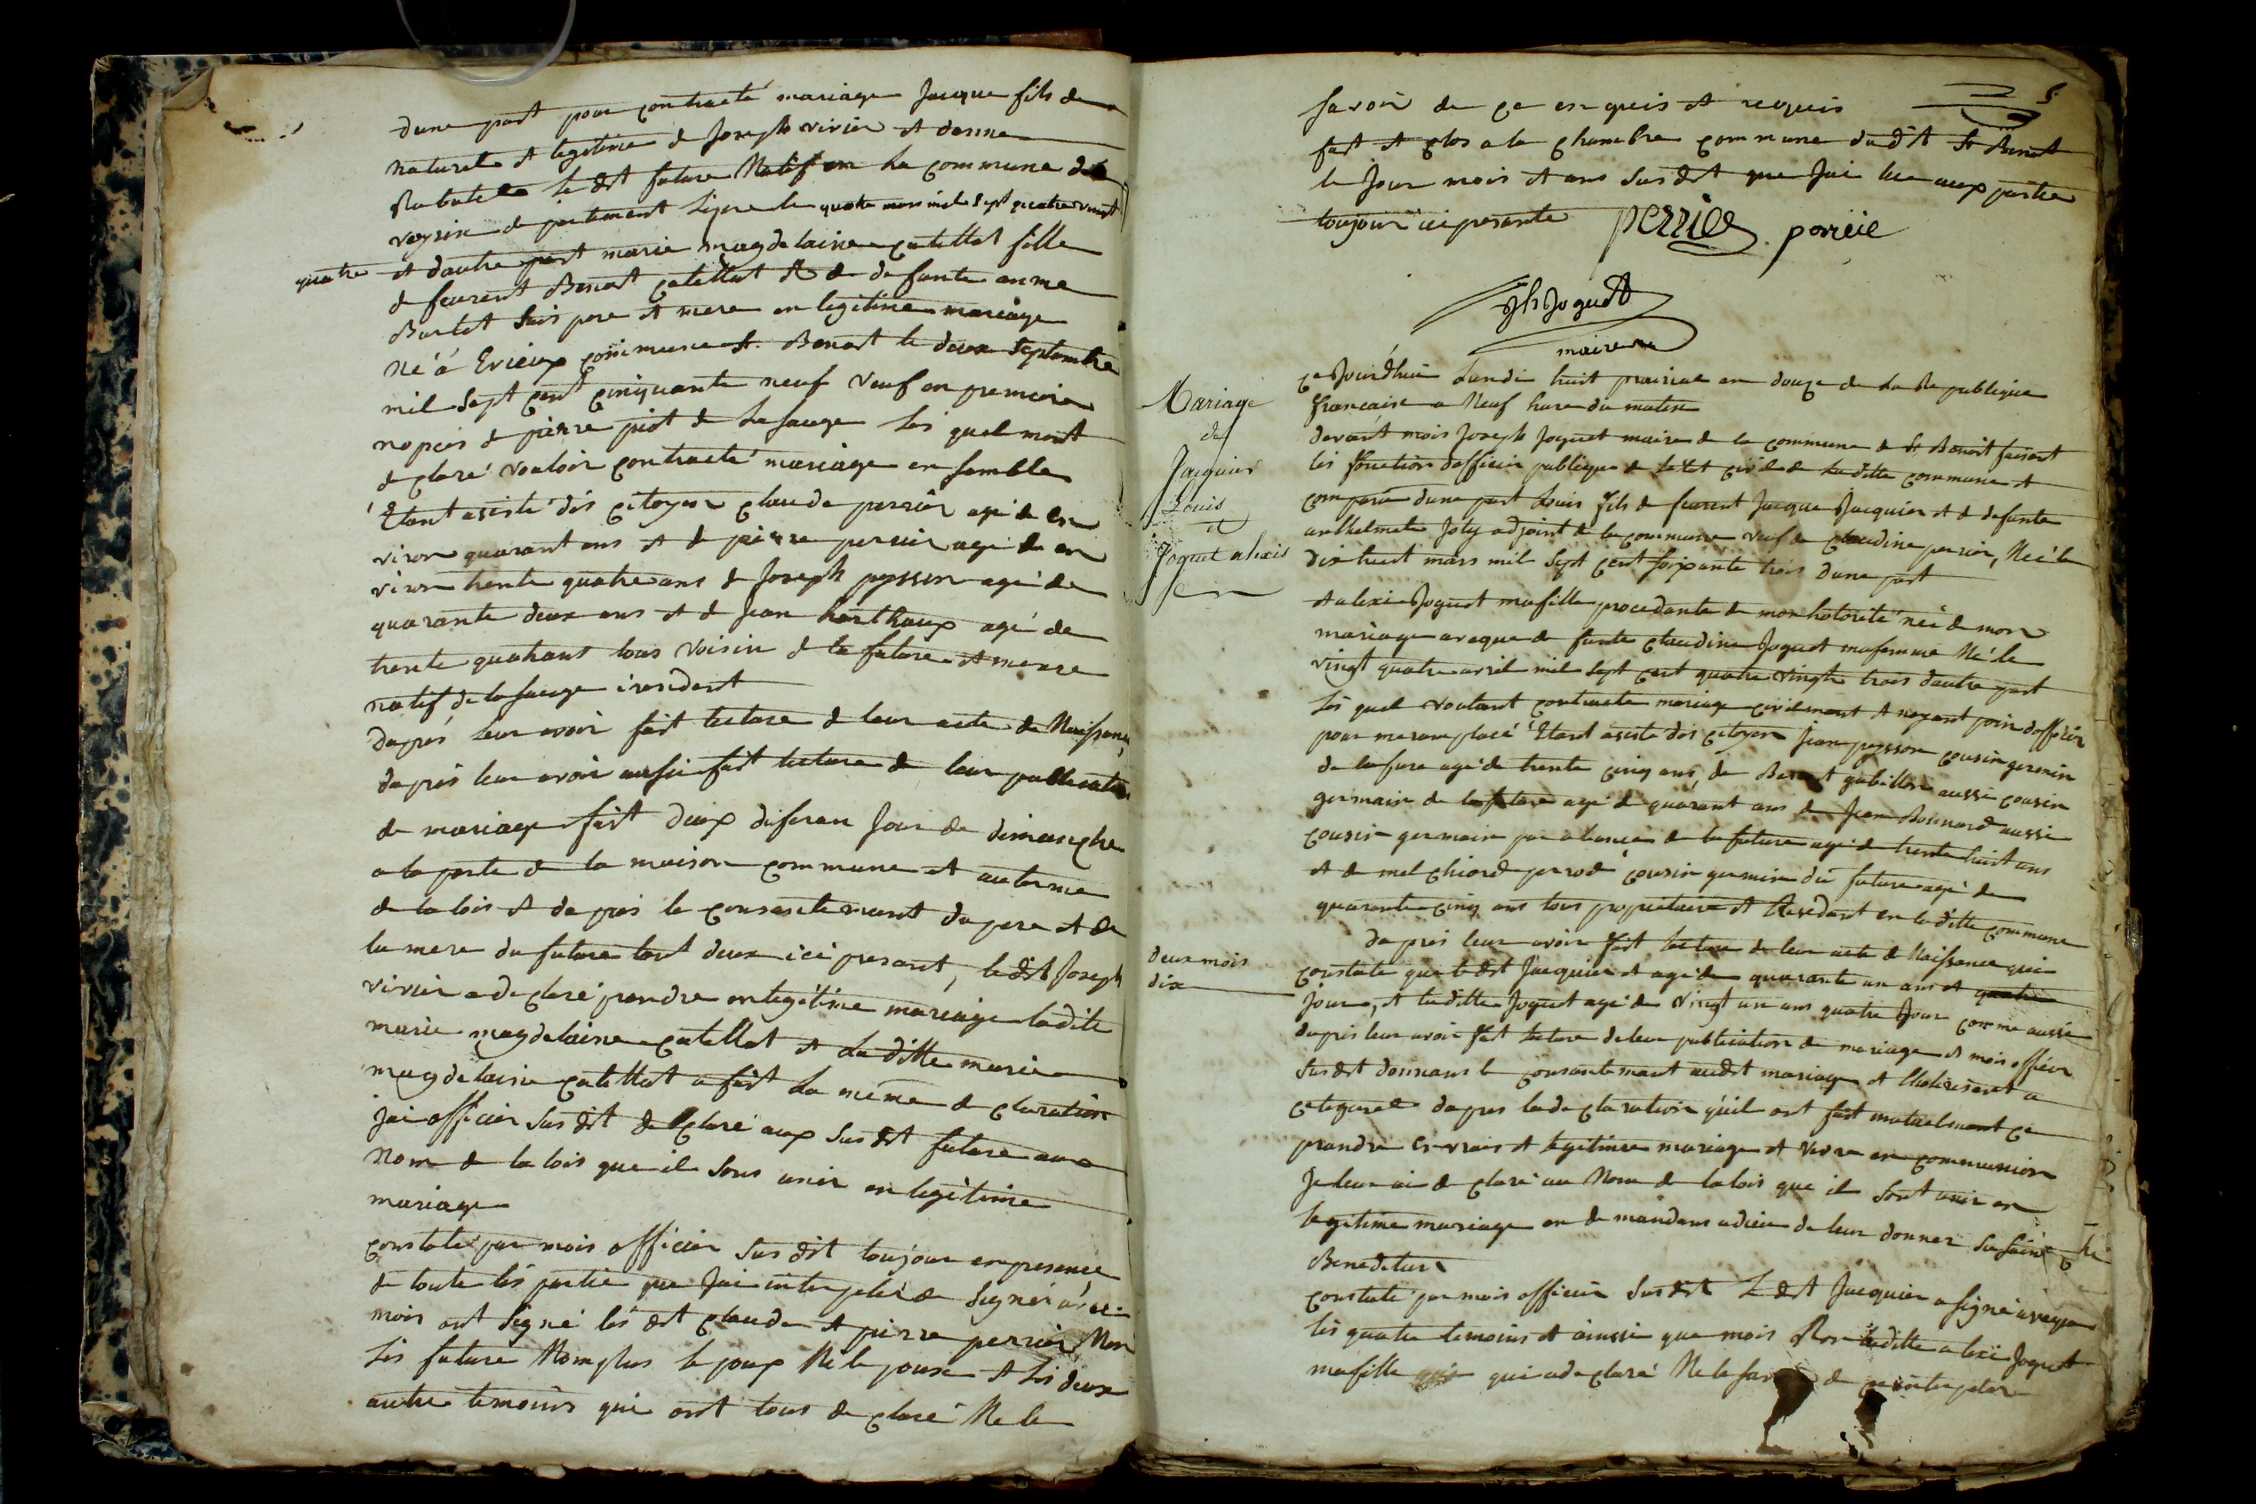 dune part pour contracté mariage Jacque fils de
naturele et legitime de Joseph vivier et danne
Rabatel le dit future Natif en la commune de
voyrin departement Lizere le quatre mars mil sept quatre vingt
quatre et dautre part marie magdelaine catellat fille
de feurent Benoit catellat et de defunte anne
Burlet suis pere et mere en legitime mariage
Né á Evieux commune St. Benoit le deux septembre
mil sept cent cinquante neuf veuf en premiere
nopces de pierre piot de la sauge les quel mont
declaré vouloir contracté mariage en semble
Etant asisté dés citoyen claude perrier agé de en
viron quarant ans et de pierre perrier agé de en
viron trente quatre ans de Joseph peysson agé de
quarante deux ans et de Jean berthaux agé de
trente quatrans tous voisin de la future et meme
natif de la sauge i residant
daprés leur avoir fait lecture de leur acte de Naissance,
daprés leur avoir aussi fait lecture de leur publication
de mariage fait deux diferan Jour de dimanche
a la porte de la maison commune et au terme
de la lois et daprés le consentement du pere et de
la mere du future tout deux ici presant, le dit Joseph
vivier a declaré prendre en legitime mariage ladite
marie magdelaine catellat et la ditte marie
magdelaine catellat a fait la méme declaration
jai officier sus dit declaré aux sus dit future au
Nom de la lois que il sons unir en legitime
mariage
constaté par mois officier sus dit toujour en presence
de toute lés partie que Jai interpelé de signer avec
mois ont signé lés dit claude et pierre perrier Non
les future Nomplus le poux Ne le pouse et lés deux
autre temoins qui ont tous declaré Ne le
5
savoir de ce en quis et requis
fait et clos a la chambre commune du dit St Benoit
le Jour mois et ans sus dit que Jai lue aux partie
toujour ici presante perrier perriée
Jh Joguet
maire
Mariage
de
Jacquier
Louis
et
Joguet alexis
ce Jourdhui Lundi huit prairial an douze de la Republique
francaise a Neuf heure du matin
devant mois Joseph Joguet maire de la commune de St Benoit faisant
les fonction dofficier publique de letat civil de la ditte commune et
comparu dune part Louis fils de feurent Jacque Jacquier et de defunte
anthelmette Joly adjoint de la commune veuf de claudine perrier, Neé le
dix huit mars mil sept cent soixante trois dune part
et alexi Joguet mafille procedante de mon hotorité neé de mon
mariage aveque defunte claudine Joguet mafemme Né le
vingt quatre avril mil sept cent quatre vingts trois dautre part
lés quel voulant contracté mariage civilement et nayant poin dofficier
pour me ramplacé Etant asisté des citoyen Jean peysson cousin germain
de la fure agé de trente cinq ans, de Benoit gabillon aussi cousin
germain de la future agé de quarant ans de Jean Bonnard aussi
cousin germain par aliance de la future agé de trente huit ans
et de melchiord perrod cousin germain du future agé de
quarante cinq ans tous propriétaire et Residant en la ditte commune
daprés leur avoir fait lecture de leur acte de Naissance qui
deux mois
dix
constate que le dit Jacquier et agé de quarante un ans et quatre
jour, et laditte Joguet agé de vingt un ans quatre Jour comme aussi
daprés leur avoir fait lecture de leur publication de mariage et mois officier
sus dit donnans le consantemant audit mariage et
daprés la declaration quil ont fait mutuelmant ce
prandre en vrais et legitime mariage et vivre en communion
Je leur ai declaré au Nom de la lois que il sont unir en
legitime mariage en demandans adieu de leur donner sa sainte
Benedition
constaté par mois officier sus dit Le dit Jacquier a signé aveque
lés quatre temoins et ainssi que mois Non laditte alexi Joguet
mafille qui a declaré Ne le de ce interpeler